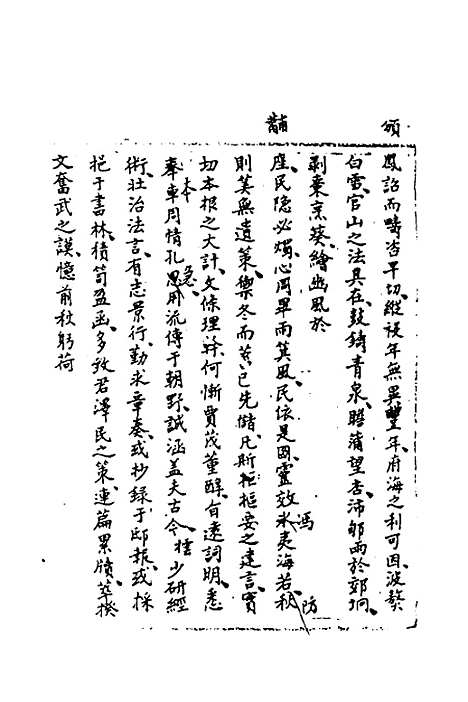 頒
鳳詔而疇咨干切縱祲年無異豐年府海之利可因波熬
白雲官山之法具在鼓鑄青泉瞻蒲望杏沛郇雨於郊坰
剥棗烹葵繪豳風於
黼
座民隱必燭心周畢雨箕風民依是國靈效氷夷海若秋
馮
防
則筴無遺策禦冬而苦已先儲凡斯摳摳妾之建言實
切本根之大計文條理幹何慚賈茂董醇自遠詞明悉
本
急
奉車周情孔思用流傳于朝野誠涵盖夫古今
桂少研經
術壯治法言有志景行勤求章奏或抄錄于邸報或採
挹于書林積笥盈函多孜君澤民之策連篇累牘萃揆
文奮武之謨憶前秋躬荷